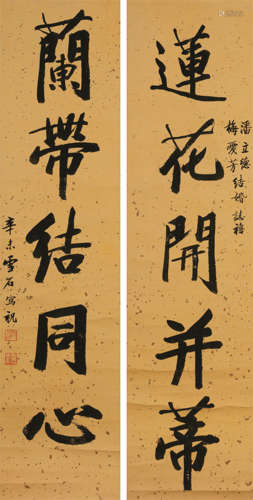 蓮花開并蒂
潘立德
梅愛芳結婚誌禧
蘭帶結同心
辛未雪石寫祝